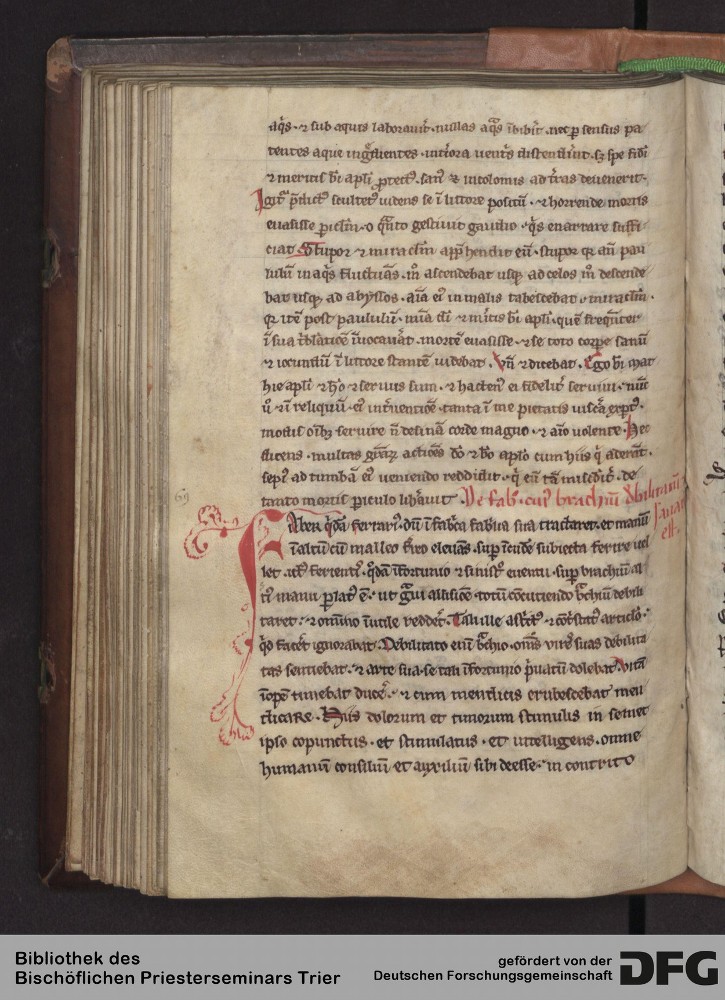 aq̄s · ⁊ sub aquis laborauit · nullas aq̄s ībibit · nec ꝑ sensus pa
tentes aque ingr̄dientes · int̄iora uent̄s distendūt · sꝫ spe fidi
⁊ meritis bī apl̄i ꝓtect⁹ · san⁹ ⁊ incolomis ad t̄ras deuenerit ·
Igit̄ p̄dict⁹ scultet⁹ uidens se ī littore positū · ⁊ horrende mortis
euasisse ꝑicl̄m · o q̄nto gestiuit gaudio · q̄s enarrare suffi
ciat · Stupor ⁊ miracl̄m app̄hendit eū · stupor qꝛ an̄ pau
lulū in aq̄s fluctuās · m̊ ascendebat usqꝫ ad celos m̊ descende
bat usqꝫ ad abyssos · aīa ei⁹ in malis tabescebat · miracl̄m ·
qꝛ itē post paululū · mīa dī ⁊ m̄itis bī apl̄i · quē freq̄nter
ī sua t̄bl̄atiōe īuocau̅at · mortē euasisse · ⁊ se toto corꝑe sanū
⁊ iocundū ī littore stantē uidebat · Vn̄ ⁊ dicebat · Ego bī mat
hie apl̄i ⁊ hō ⁊ seruus sum · ⁊ hacten⁹ ei fidelit̄ seruiui · nūc
ů ⁊ ī reliquū · ei⁹ int̄uentiōe · tanta ī me pietatis uisc̄a exꝑt⁹ ·
modis oībꝫ seruire n̄ desinā corde magno · ⁊ aīo uolente · Hec
dicens · multas gr̄aꝝ actiōes dō ⁊ bō apl̄o cum hiis q̄ aderāt ·
sepi⁹ ad tumbā ei⁹ ueniendo reddidit · q̄ eū tā mis̄dit̄ · de
tanto mortis ꝑiculo lib̄auit · De fab̄ · cui⁹ brachiū debilitatum
sanatū
est ·
Faber q̄dā ferrari⁹ · dū ī fab̄ca fabrilia sua tractaret · et manū
ī altū cū malleo fr̄eo eleuās · suꝑ īcude subiecta ferire uel
let · ict⁹ ferienti⁹ · q̄dā īfortunio ⁊ sinist⁰ euentu · suꝑ brachiū al
t̄i manu ꝑlat⁹ ē · ut ḡui allisiōe · totū cōcutiendo b̄chiū debili
taret · ⁊ omīno īutile redder̄ · Tali ille astc̄t⁹ ⁊ cōstc̄at⁹ articlō ·
q̊d facer̄ ignorabat · Debilitato enī b̄chio · om̄s uires suas debilita
tas sentiebat · ⁊ arte sua · se tali īfortunio p̄uatū dolebat · Vitā
īopē timebat ducē · ⁊ cum mendicis erubescebat men
dicare · Hiis dolorum et timorum stimulis in semet
ipso copunctus · et stimulatus · et intelligens · omne
humanū consiliū et auxiliū sibi deesse · in contrito
Bibliothek des
Bischöflichen Priesterseminars Trier
gefördert von der
Deutschen Forschungsgemeinschaft
DFG